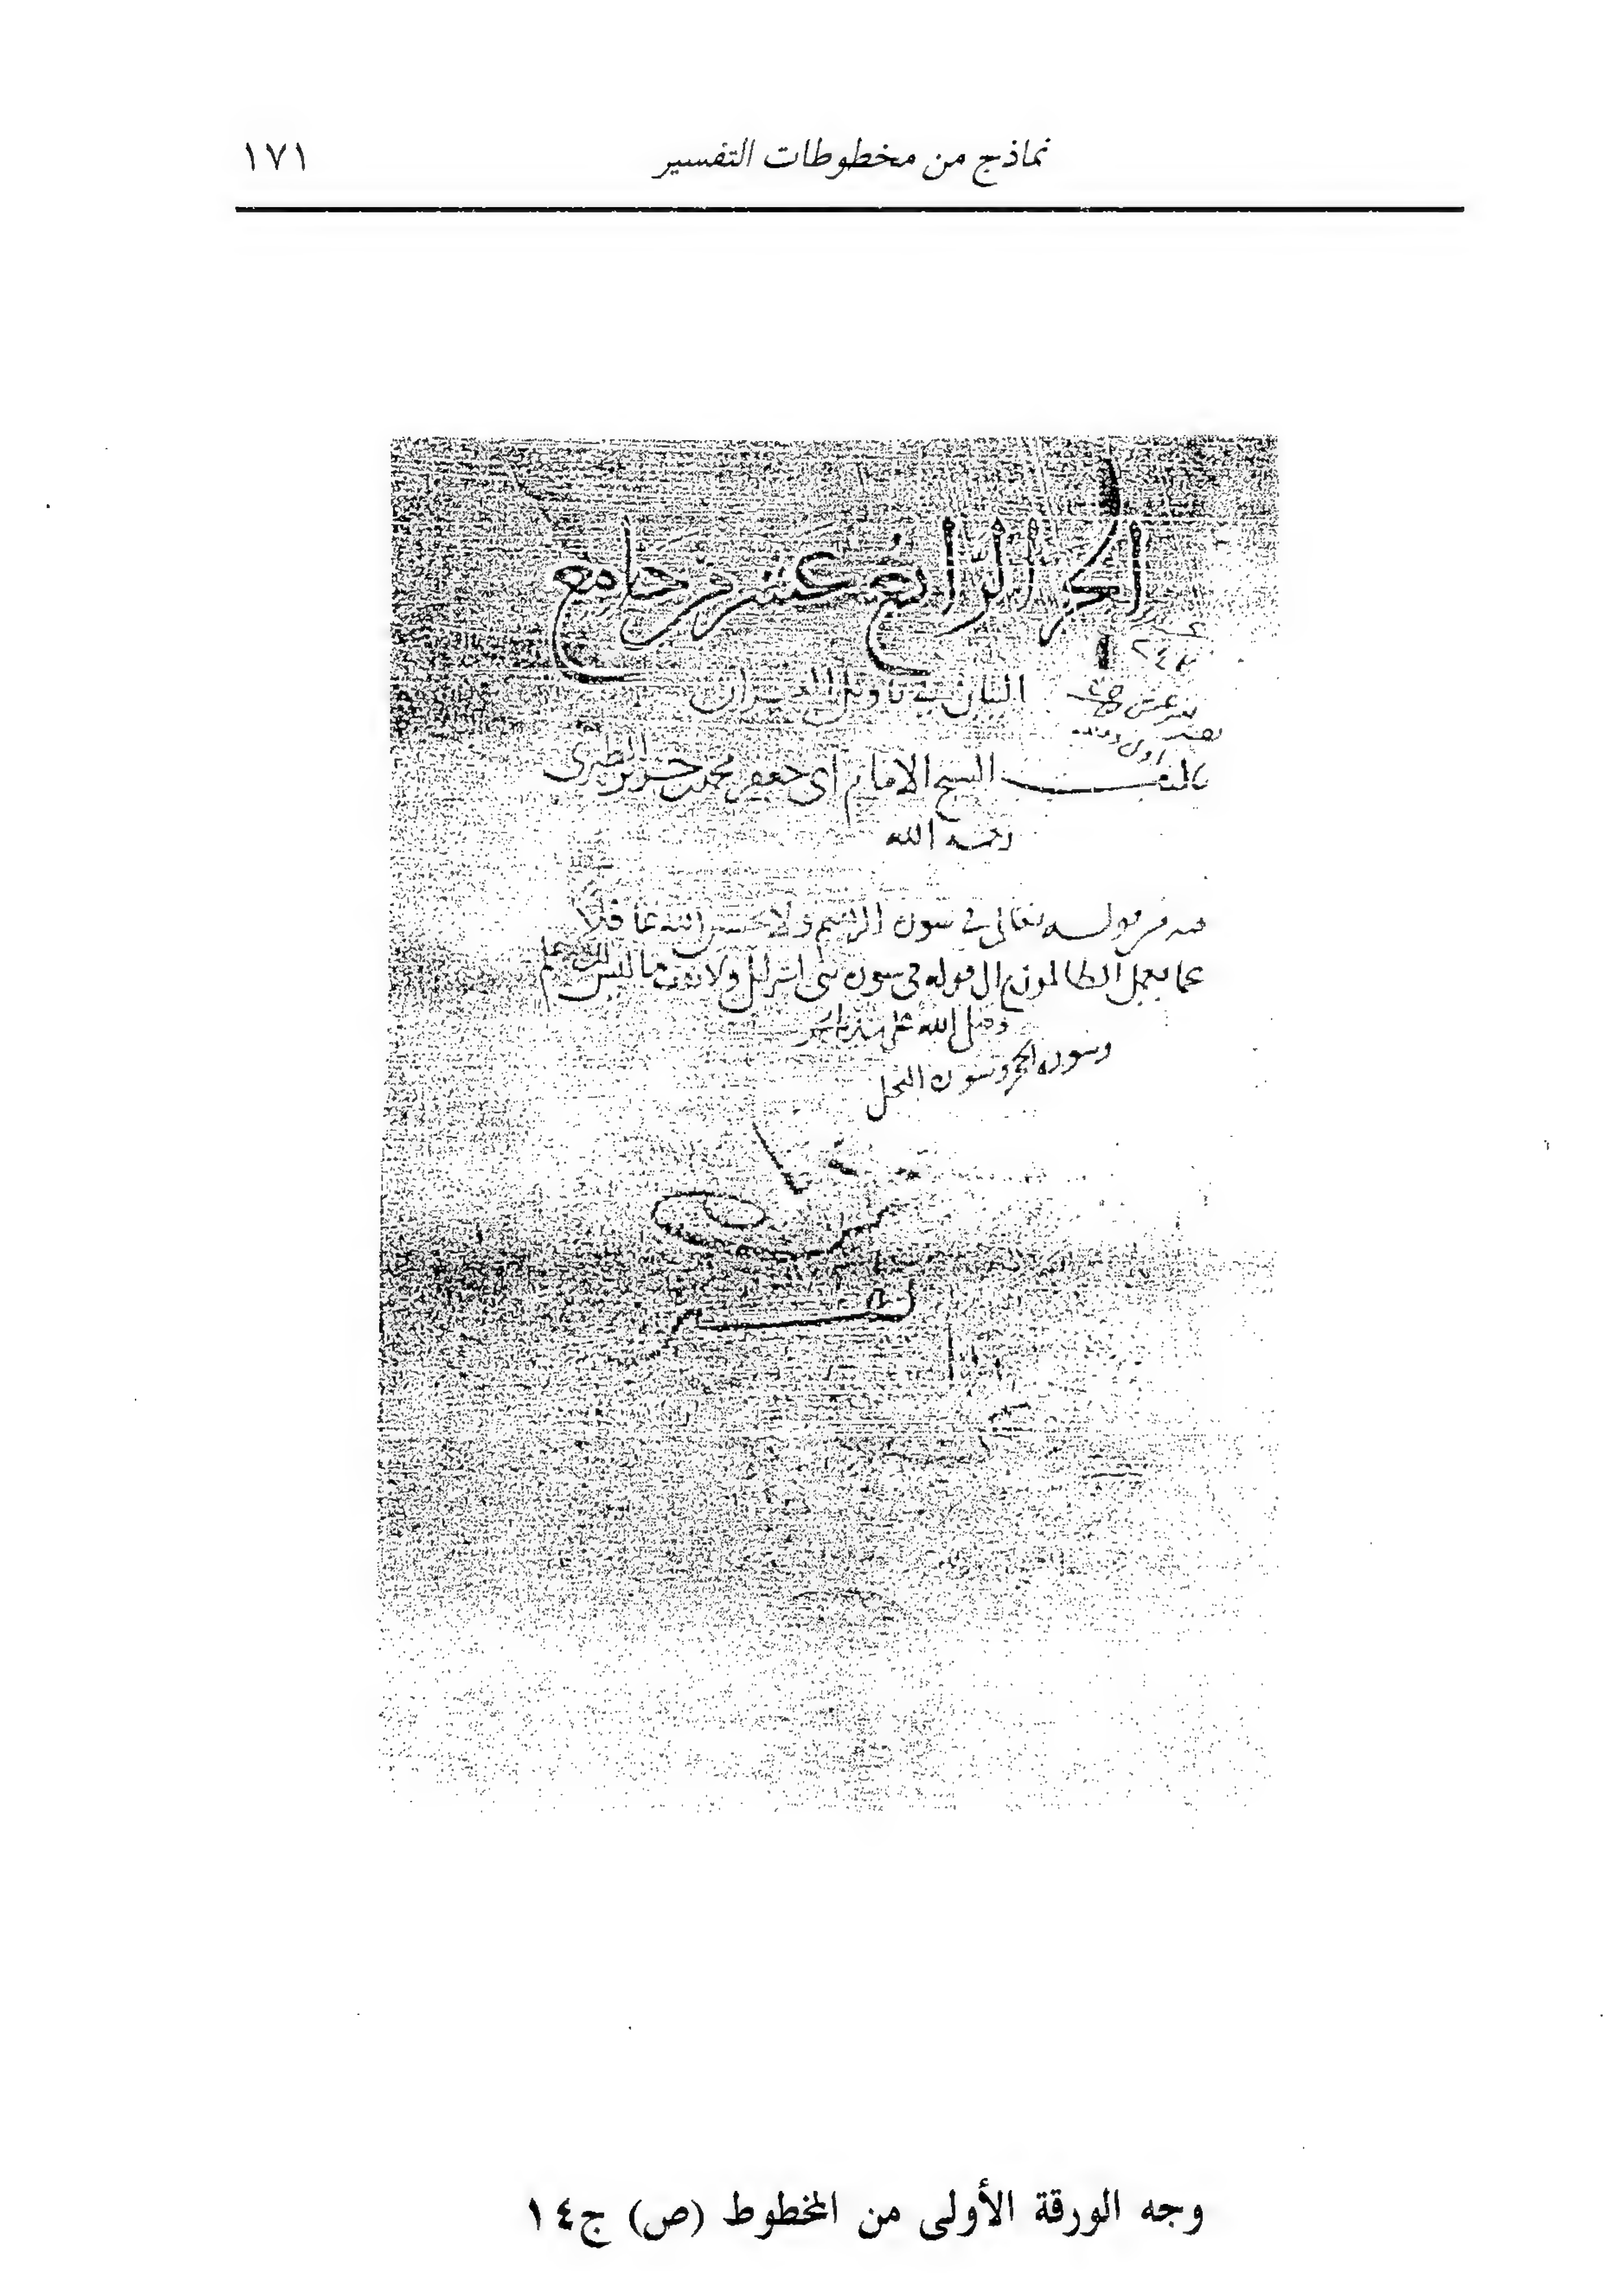 نماذج من مخطوطات التفسير
١٧١
الجزء الرابع عشر من جامع
البيان في تاويل القران
تاليف الشيخ الامام ابي جعفر محمد بن جرير الطبري
رحمه الله
فيه من قوله تعالى في سورة ابرهيم ولا تحسبن الله غافلا
عما يعمل الظالمون الى قوله في سورة بني اسرايل ولا تقف ما ليس لك به علم
وسورة الحجر وسورة النحل
وجه الورقة الأولى من المخطوط (ص) ج١٤